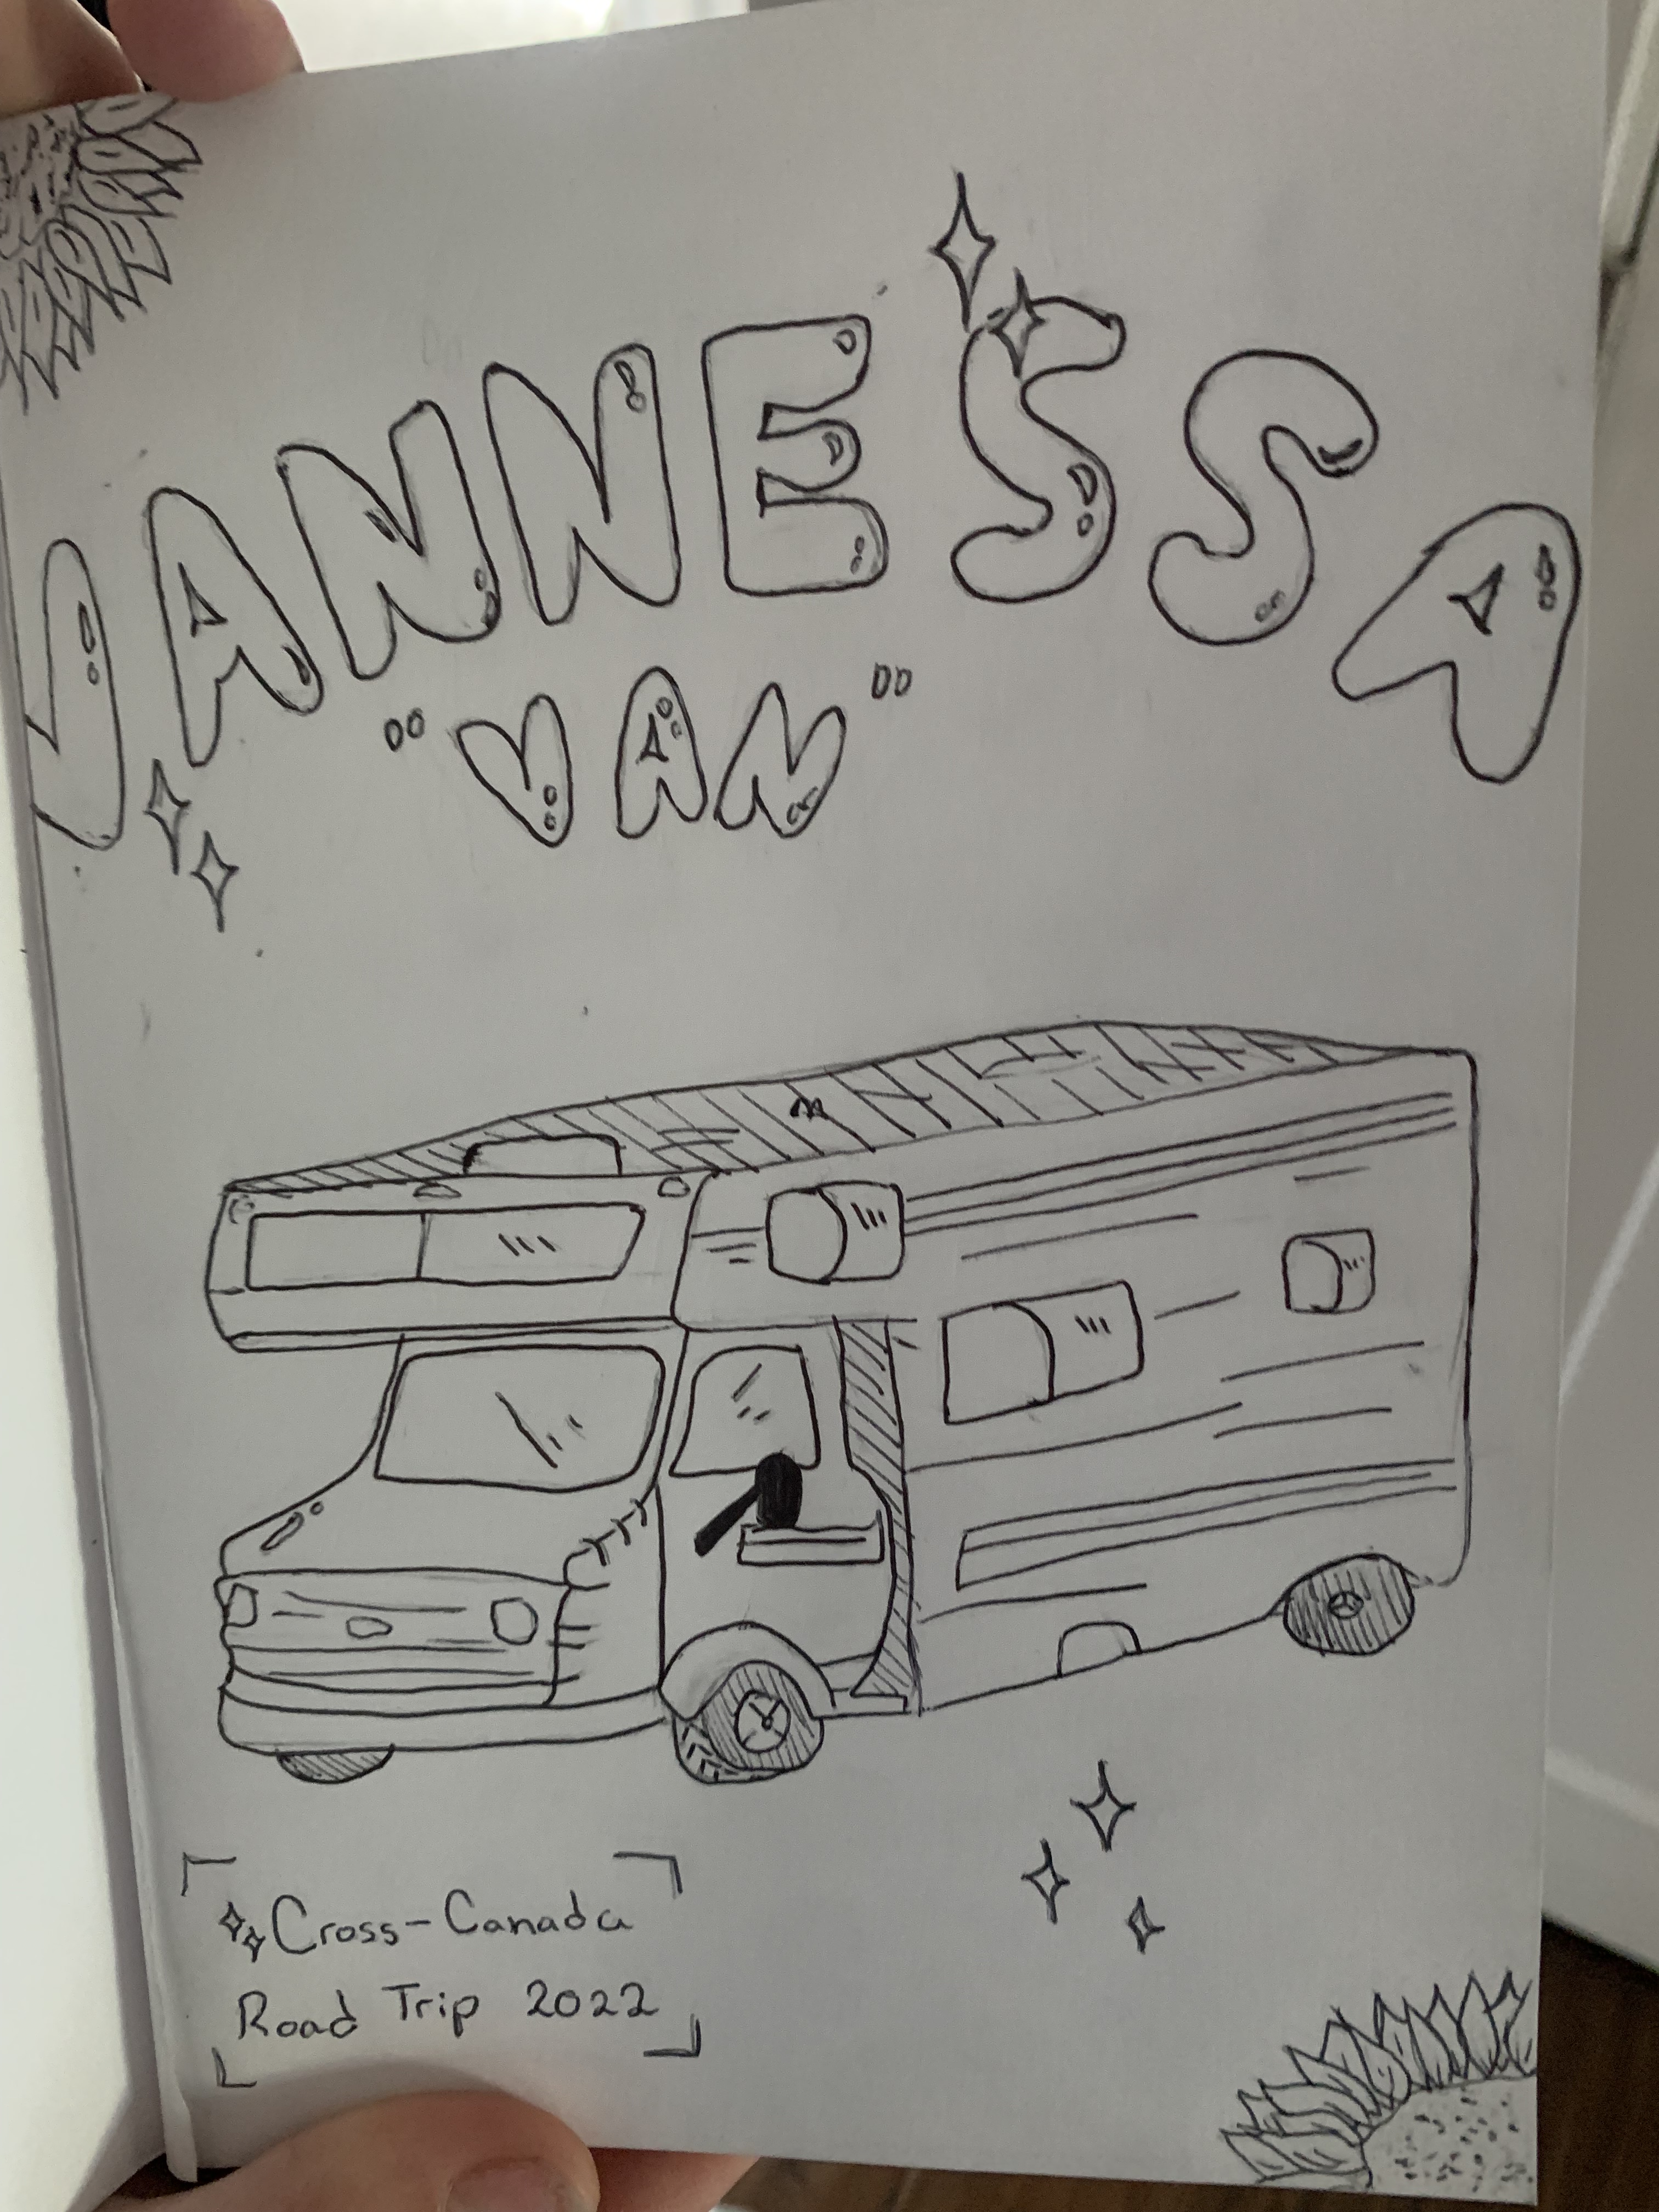 JANNESSA
"VAN"
Cross-Canada
Road Trip 2022